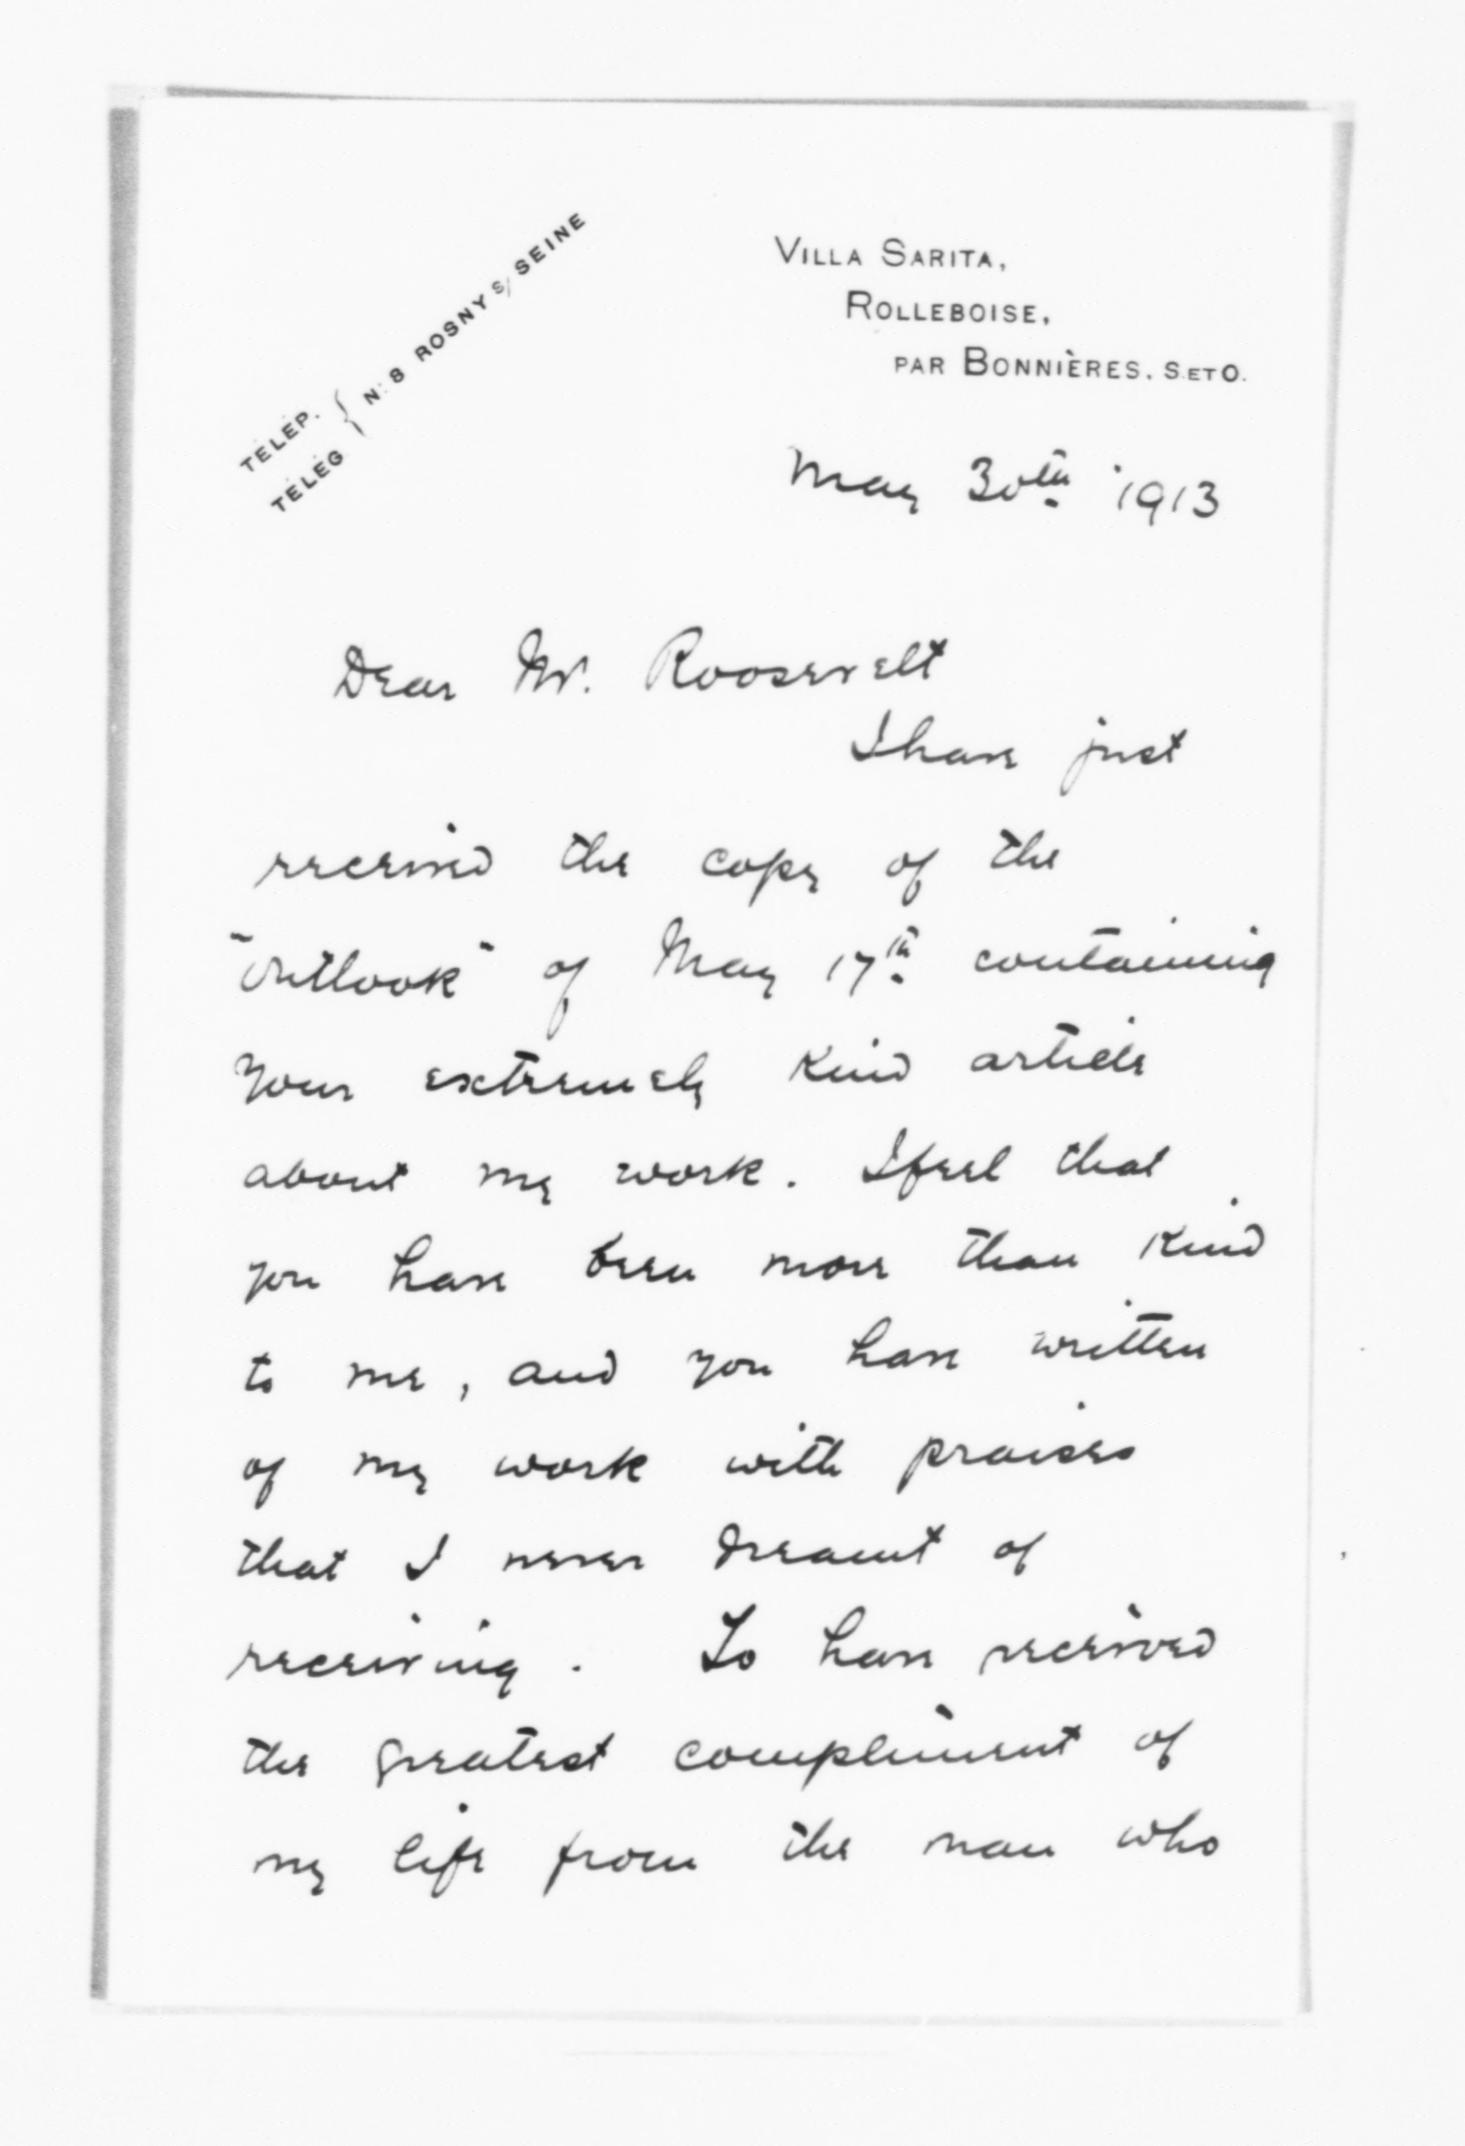 TÉLÉP.
TÉLÉG
N: 8 ROSNY S/ SEINE
VILLA SARITA,
ROLLEBOISE,
PAR BONNIÈRES. S. ET O.
May 30th 1913
Dear Mr. Roosevelt
I have just
received the copy of the
"Outlook" of May 17th containing
your extremely kind article
about my work. I feel that
you have been more than kind
to me, and you have written
of my work with praises
that I never dreamt of
receiving. To have received
the greatest compliment of
my life from the man who